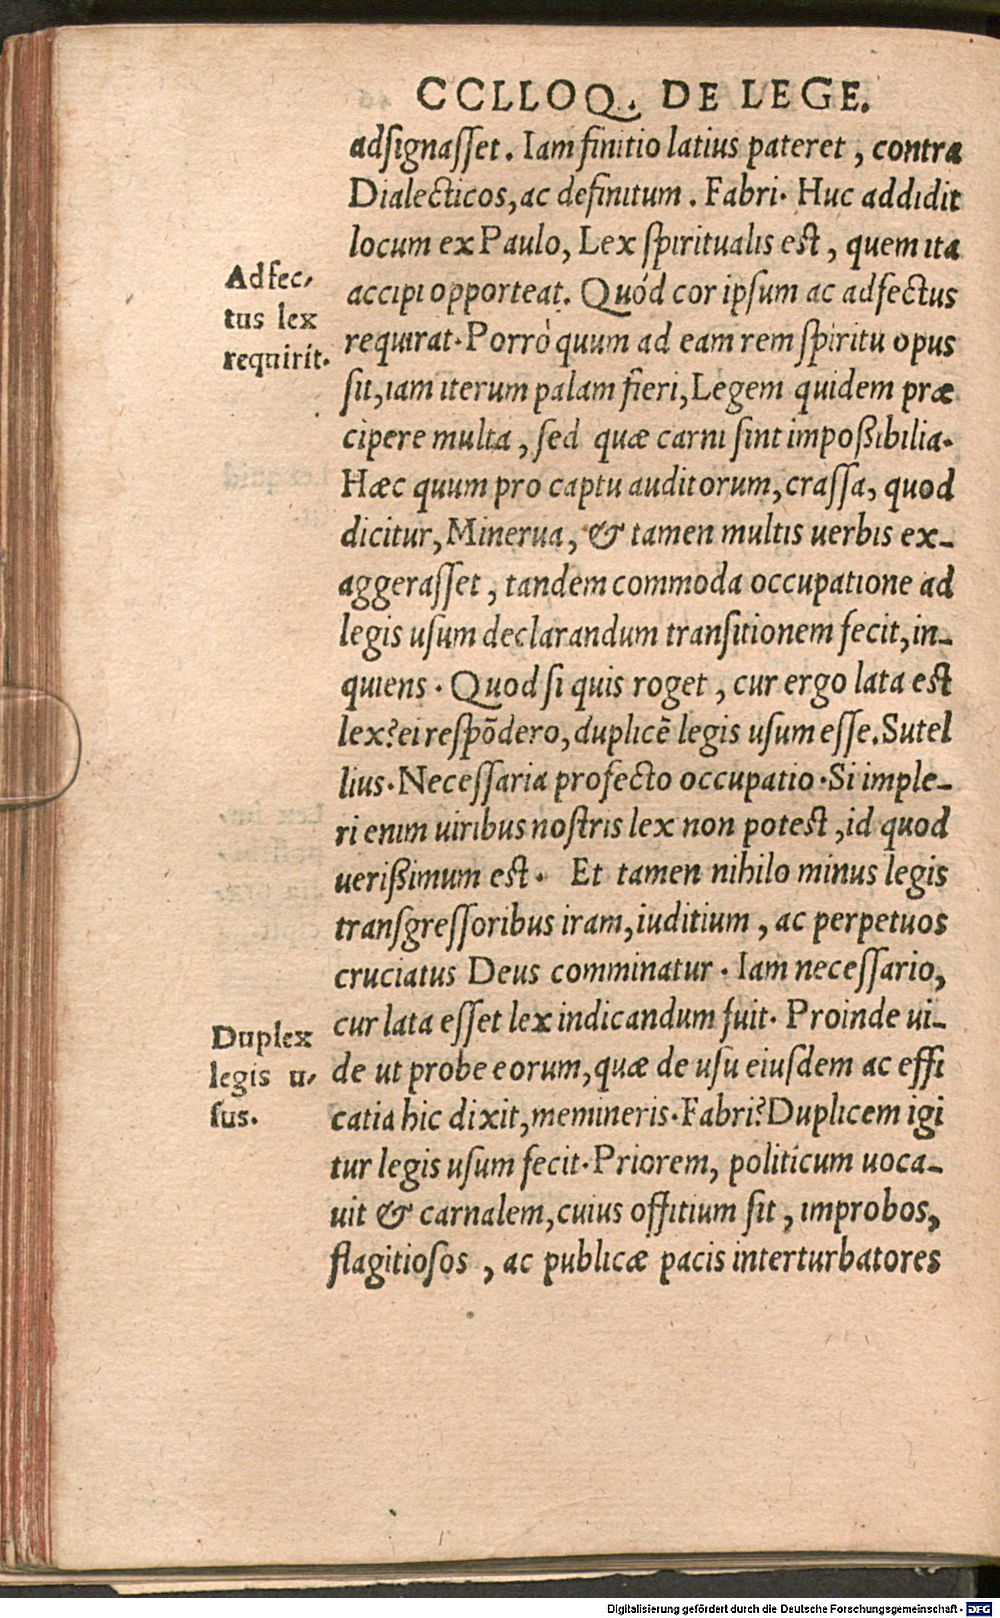 CCLLOQ. DE LEGE.
adsignasset. Iam finitio latius pateret, contra
Dialecticos, ac definitum. Fabri. Huc addidit
locum ex Paulo, Lex spiritualis est, quem ita
Adfec,
tus lex
requirit.
accipi opporteat. Quód cor ipsum ac adfectus
requirat. Porrò quum ad eam rem spiritu opus
sit, iam iterum palam fieri, Legem quidem præ
cipere multa, sed quæ carni sint impoßibilia.
Hæc quum pro captu auditorum, crassa, quod
dicitur, Minerua, & tamen multis uerbis ex-
aggerasset, tandem commoda occupatione ad
legis usum declarandum transitionem fecit, in-
quiens. Quod si quis roget, cur ergo lata est
lex? ei respōdero, duplicē legis usum esse. Sutel
lius. Necessaria profecto occupatio. Si imple-
ri enim uiribus nostris lex non potest, id quod
uerißimum est. Et tamen nihilo minus legis
transgressoribus iram, iuditium, ac perpetuos
cruciatus Deus comminatur. Iam necessario,
cur lata esset lex indicandum fuit. Proinde ui-
Duplex
legis u,
sus.
de ut probe eorum, quæ de usu eiusdem ac effi
catia hic dixit, memineris. Fabri? Duplicem igi
tur legis usum fecit. Priorem, politicum uoca-
uit & carnalem, cuius offitium sit, improbos,
flagitiosos, ac publicæ pacis interturbatores
Digitalisierung gefördert durch die Deutsche Forschungsgemeinschaft - DFG